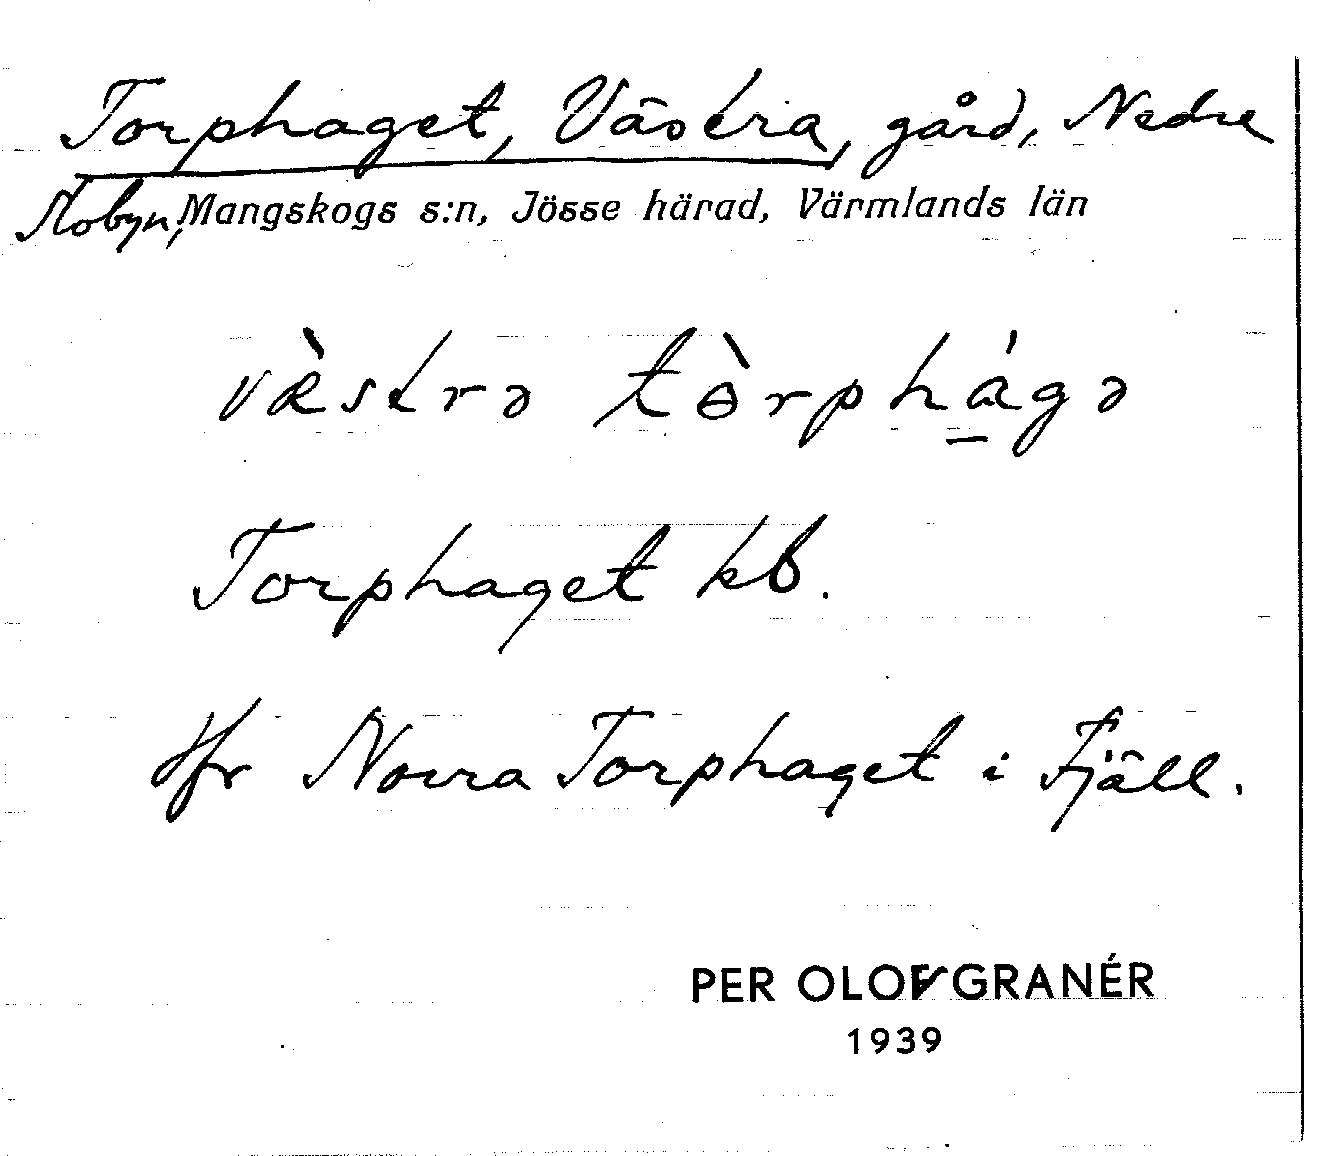 Torphaget, Västra, gård, Nedre
Mobyn, Mangskogs s:n, Jösse härad, Värmlands län
væ̀strə tɵ̀rphága̲gə
Torphaget kb.
Jfr Norra Torphaget i Fjäll.
PER OLOF GRANÉR
1939